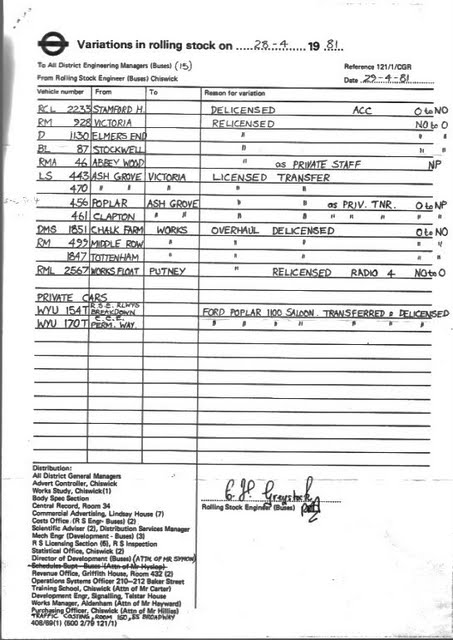 Variations in rolling stock on 28-4 19 81.
To All District Engineering Managers (Buses) (15)
Reference 121/1/CGR
From Rolling Stock Engineer (Buses) Chiswick
Date 29-4-81
Vehicle number From To Reason for variation
BCL 2233 STAMFORD H. DELICENSED ACC O to NO
RM 928 VICTORIA RELICENSED NO to O
D 1130 ELMERS END " " "
BL 87 STOCKWELL " " "
RMA 46 ABBEY WOOD " as PRIVATE STAFF NP
LS 443 ASH GROVE VICTORIA LICENSED TRANSFER
470 " " " " "
456 POPLAR ASH GROVE " " as PRIV. TNR. O to NP
461 CLAPTON " " " " " " " "
DMS 1851 CHALK FARM WORKS OVERHAUL DELICENSED O to NO
RM 499 MIDDLE ROW " " " " "
1847 TOTTENHAM " " " " "
RML 2567 WORKS FLOAT PUTNEY " RELICENSED RADIO 4 NO to O
PRIVATE CARS
WYU 154T R.S.E. RLWYS BREAKDOWN FORD POPLAR 1100 SALOON. TRANSFERRED & DELICENSED
WYU 170T C.C.E. PERM. WAY. " " " " " "
Distribution:
All District General Managers
Advert Controller, Chiswick
Works Study, Chiswick (1)
Body Spec Section
Central Record, Room 34
Commercial Advertising, Lindsay House (7)
Costs Office (R S Engr- Buses) (2)
Scientific Adviser (2), Distribution Services Manager
Mech Engr (Development - Buses) (3)
R S Licensing Section (6), R S Inspection
Statistical Office, Chiswick (2)
Director of Development (Buses) (ATTN OF MR SYMON)
Schedules Supt - Buses (Attn of Mr Hyslop)
Revenue Office, Griffith House, Room 432 (2)
Operations Systems Officer 210-212 Baker Street
Training School, Chiswick (Attn of Mr Carter)
Development Engr, Signalling, Telstar House
Works Manager, Aldenham (Attn of Mr Hayward)
Purchasing Officer, Chiswick (Attn of Mr Hillies)
TRAFFIC COSTING, ROOM 150, 55 BROADWAY
408/89(1) (500 2/79 121/1)
Rolling Stock Engineer (Buses)